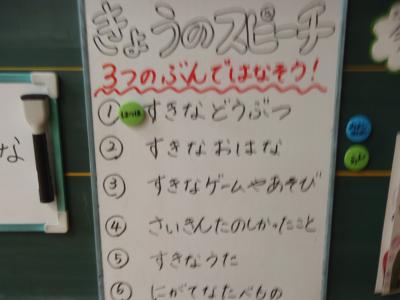 きょうのスピーチ
3つのぶんではなそう!
① すきなどうぶつ
② すきなおはな
③ すきなゲームやあそび
④ さいきんたのしかったこと
⑤ すきなうた
⑥ にがてなたべもの
な